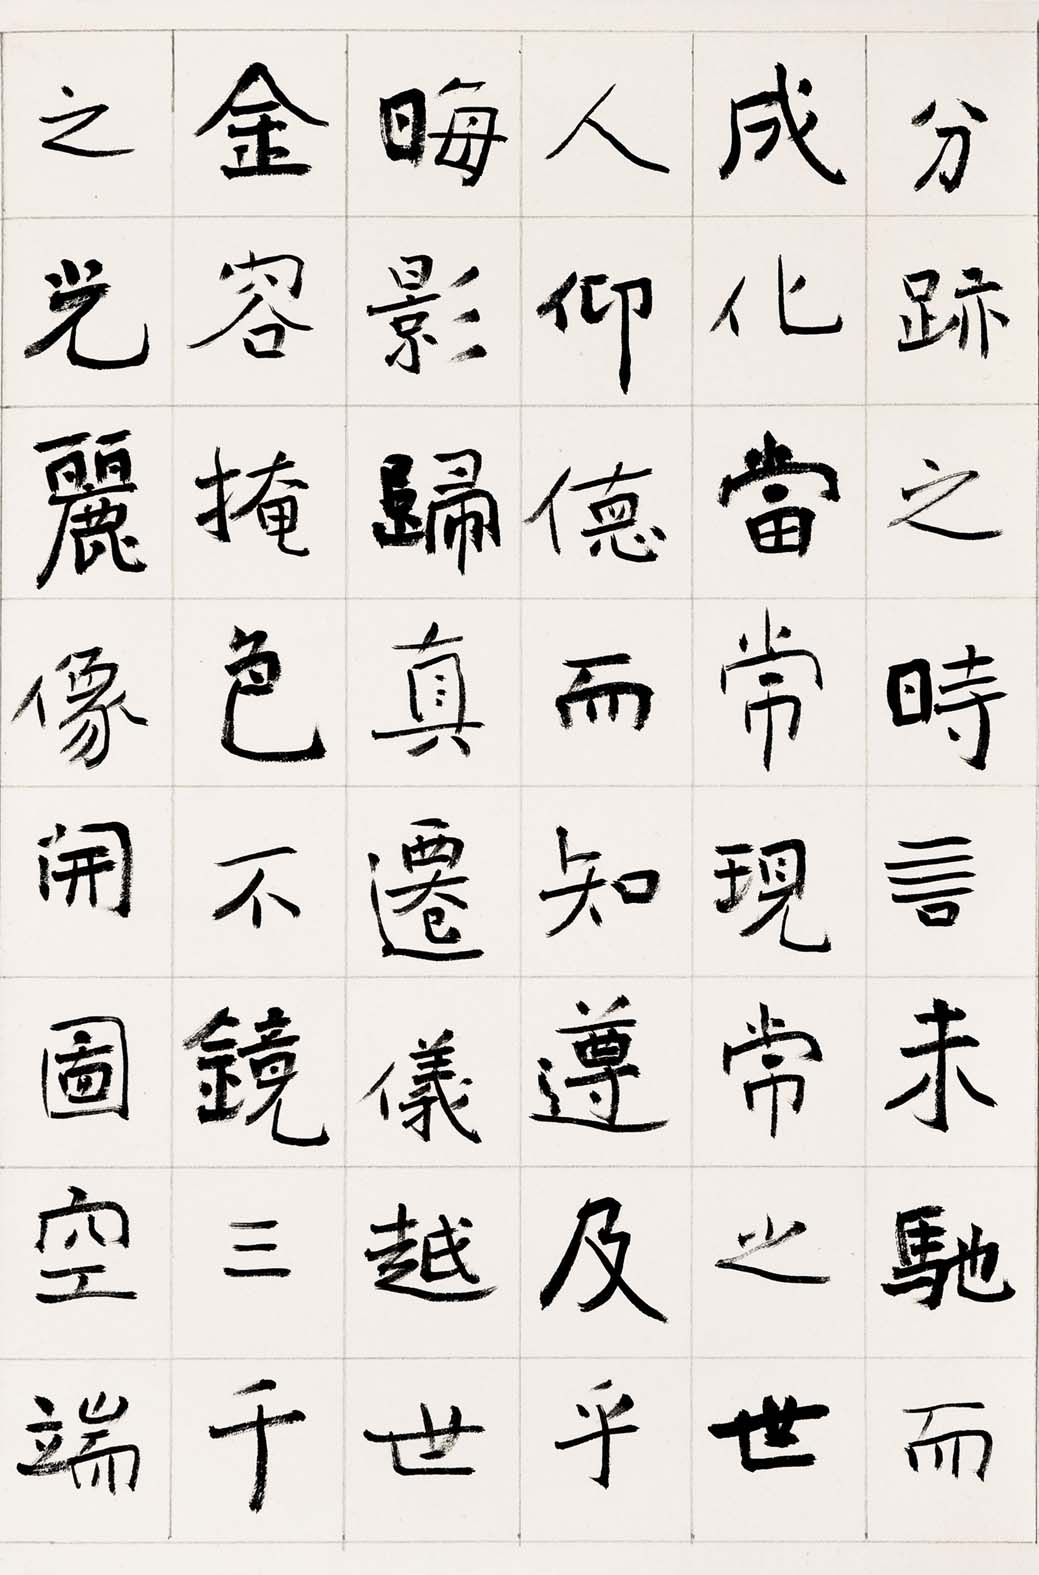 分跡之時言未馳而
成化當常現常之世
人仰德而知遵及乎
晦影歸真遷儀越世
金容掩色不鏡三千
之光麗像開圖空端